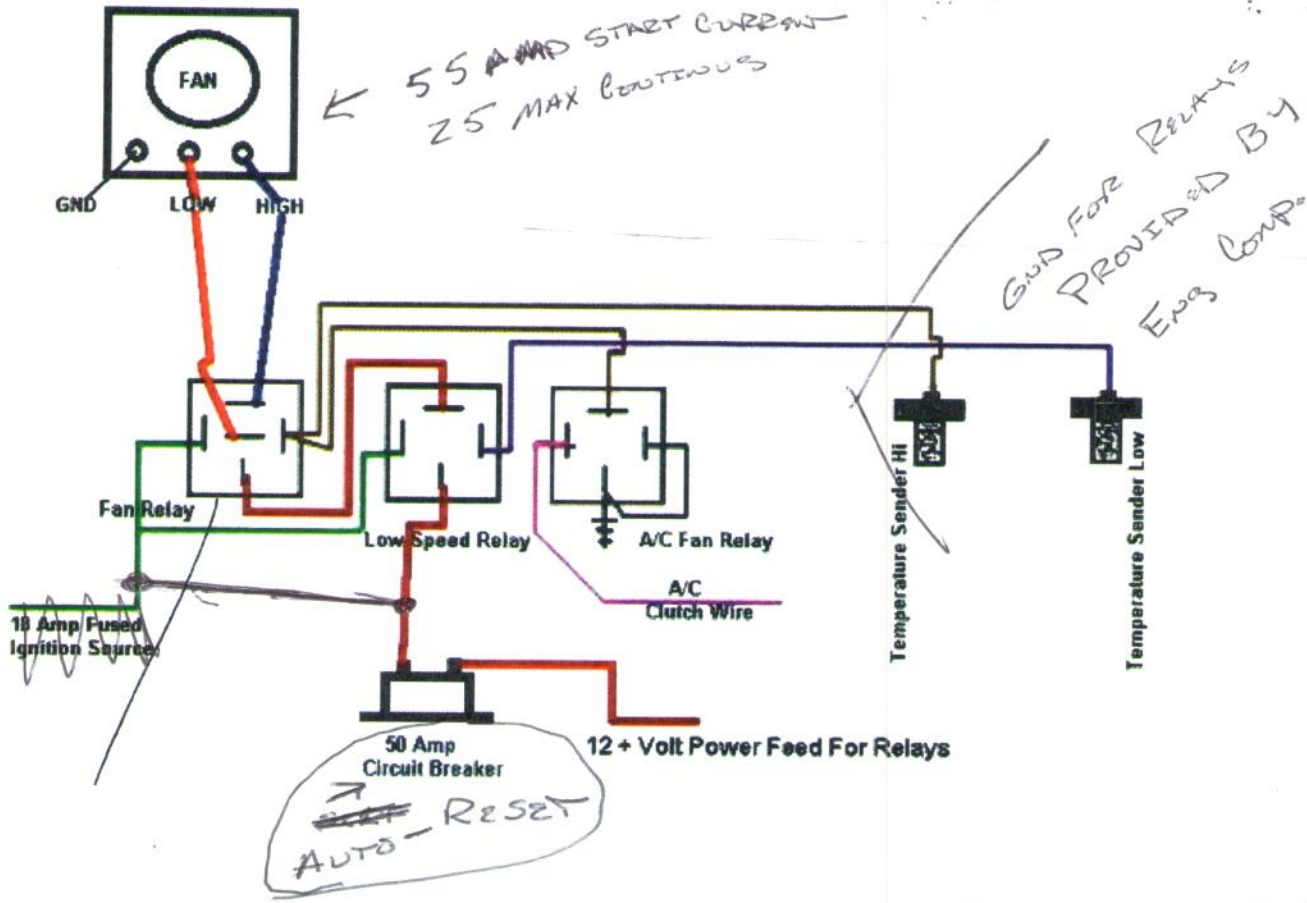 FAN
55 AMP START CURRENT
25 MAX CONTINUS
GND LOW HIGH
GND FOR RELAYS
PROVIDED BY
ENG COMP.
Fan Relay
Low Speed Relay
A/C Fan Relay
A/C
Clutch Wire
Temperature Sender Hi
Temperature Sender Low
18 Amp Fused
Ignition Source
50 Amp
Circuit Breaker
12 + Volt Power Feed For Relays
AUTO-RESET